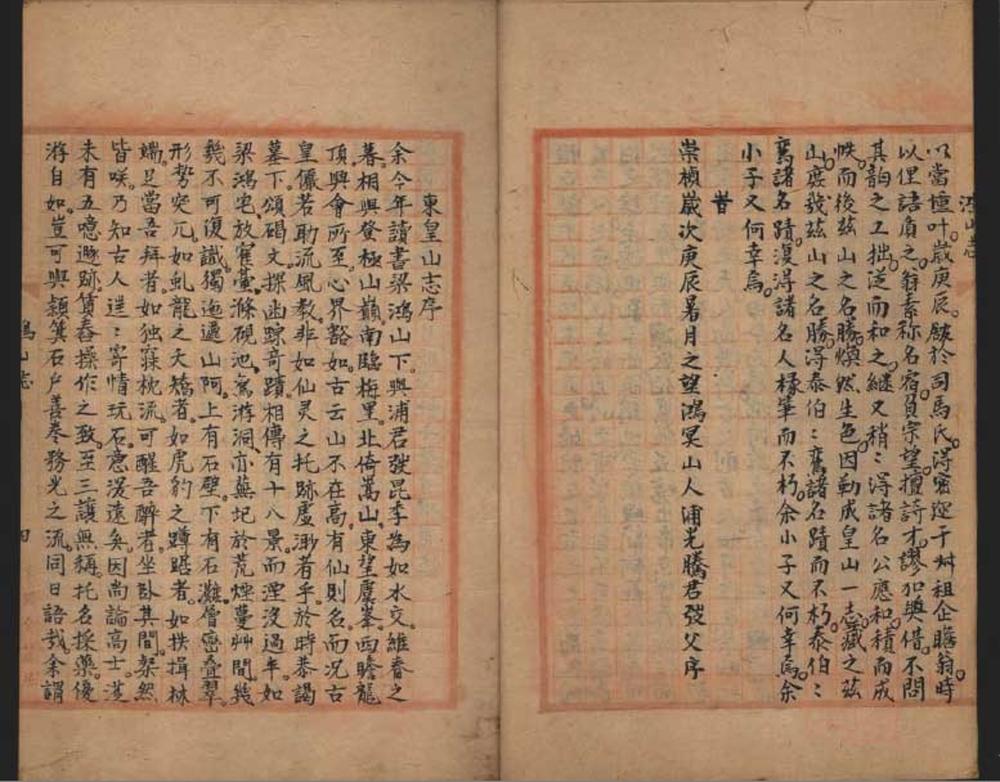 以當壎叶歲庚辰館於司馬氏得密邇于舛祖企瞻翁時
以俚語質之翁素称名宿負宗望擅詩才謬加奬借不問
其韵之工拙逆而和之継又稍〻得諸名公應和積而成
帙而後兹山之名勝煥然生色因勒成皇山一志藏之兹
山庶㡬兹山之名勝得泰伯〻鸞諸名蹟而不朽泰伯〻
鸞諸名蹟復得諸名人椽筆而不朽余小子又何幸焉余
小子又何幸焉
旹
崇禎歲次庚辰暑月之望鴻冥山人浦光騰君弢父序
東皇山志序
余今年讀書梁鴻山下與浦君弢昆季為如水交維春之
暮相與登極山巔南臨梅里北倚嵩山東望虞峯西瞻龍
頂興會所至心界豁如古云山不在高有仙則名而况古
皇儼若助流風教非如仙灵之托跡虛渺者乎於時恭謁
墓下頌碣文探幽踪竒蹟相傳有十八景而湮没過半如
梁鴻宅放鶴臺滌硯池鴛游洞亦蕪圮於荒煙蔓艸間㡬
㡬不可復識獨迤邐山阿上有石壁下有石灘層巒叠翠
形勢突兀如虬龍之夭矯者如虎豹之蹲踞者如拱揖林
端足當吾拜者如独寐枕流可醒吾醉者坐卧其間粲然
皆咲乃知古人迋〻寄情玩石意深遠矣因尚論高士漢
未有五噫遯跡賃舂操作之致至三讓無稱托名採藥優
游自如豈可與潁箕石户善卷務光之流同日語哉余謂
鴻山志